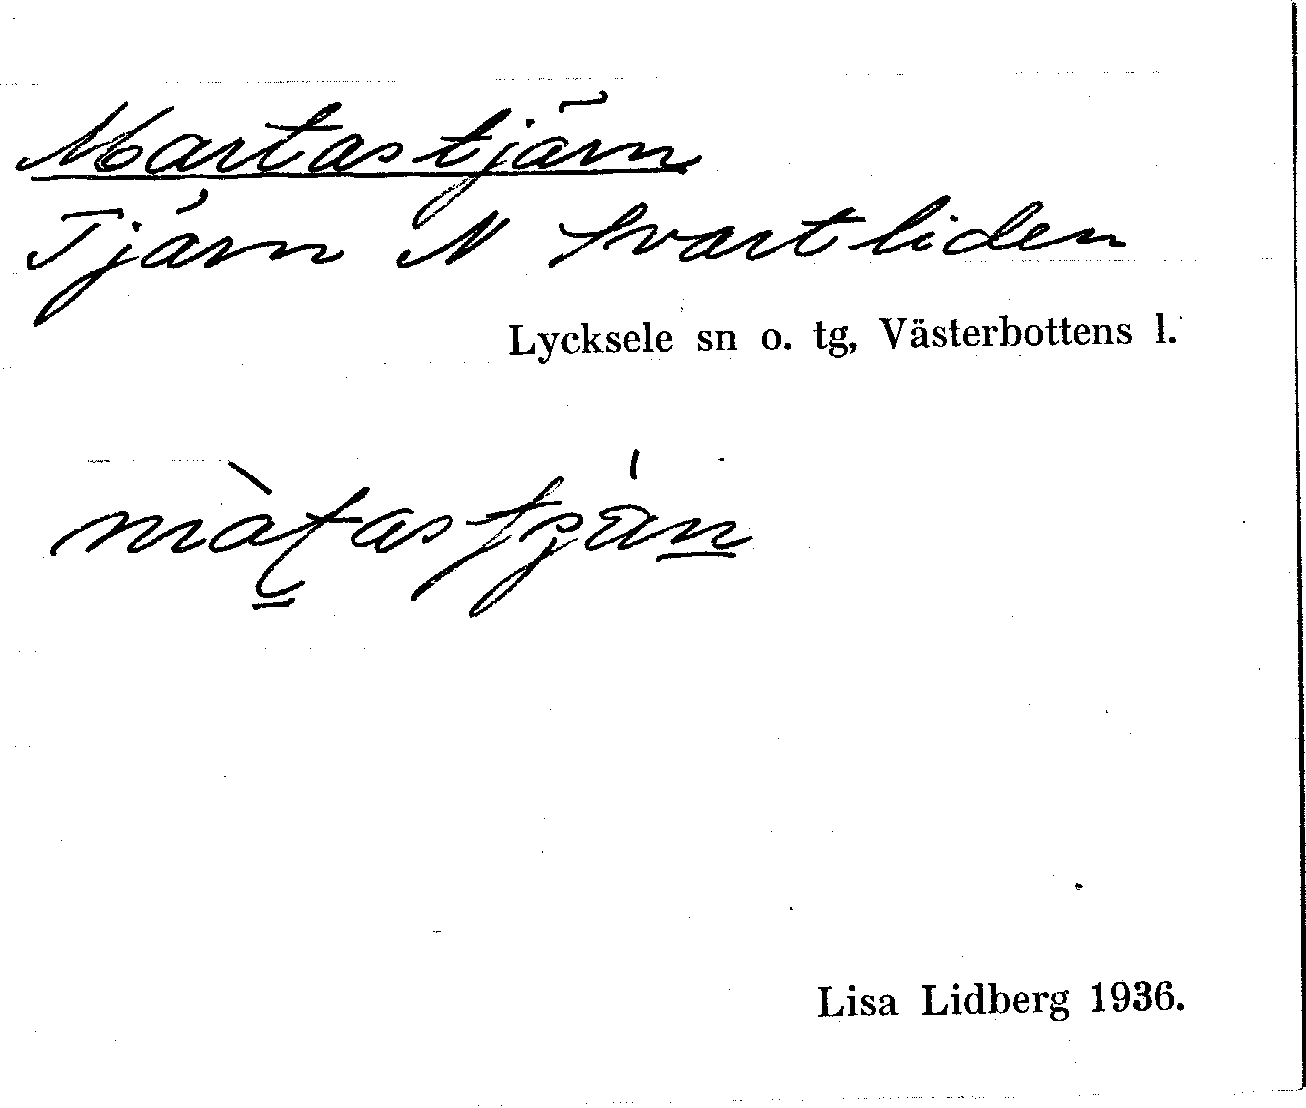 Martastjärn
Tjärn N Svartliden
Lycksele sn o. tg, Västerbottens l.
Lisa Lidberg 1936.